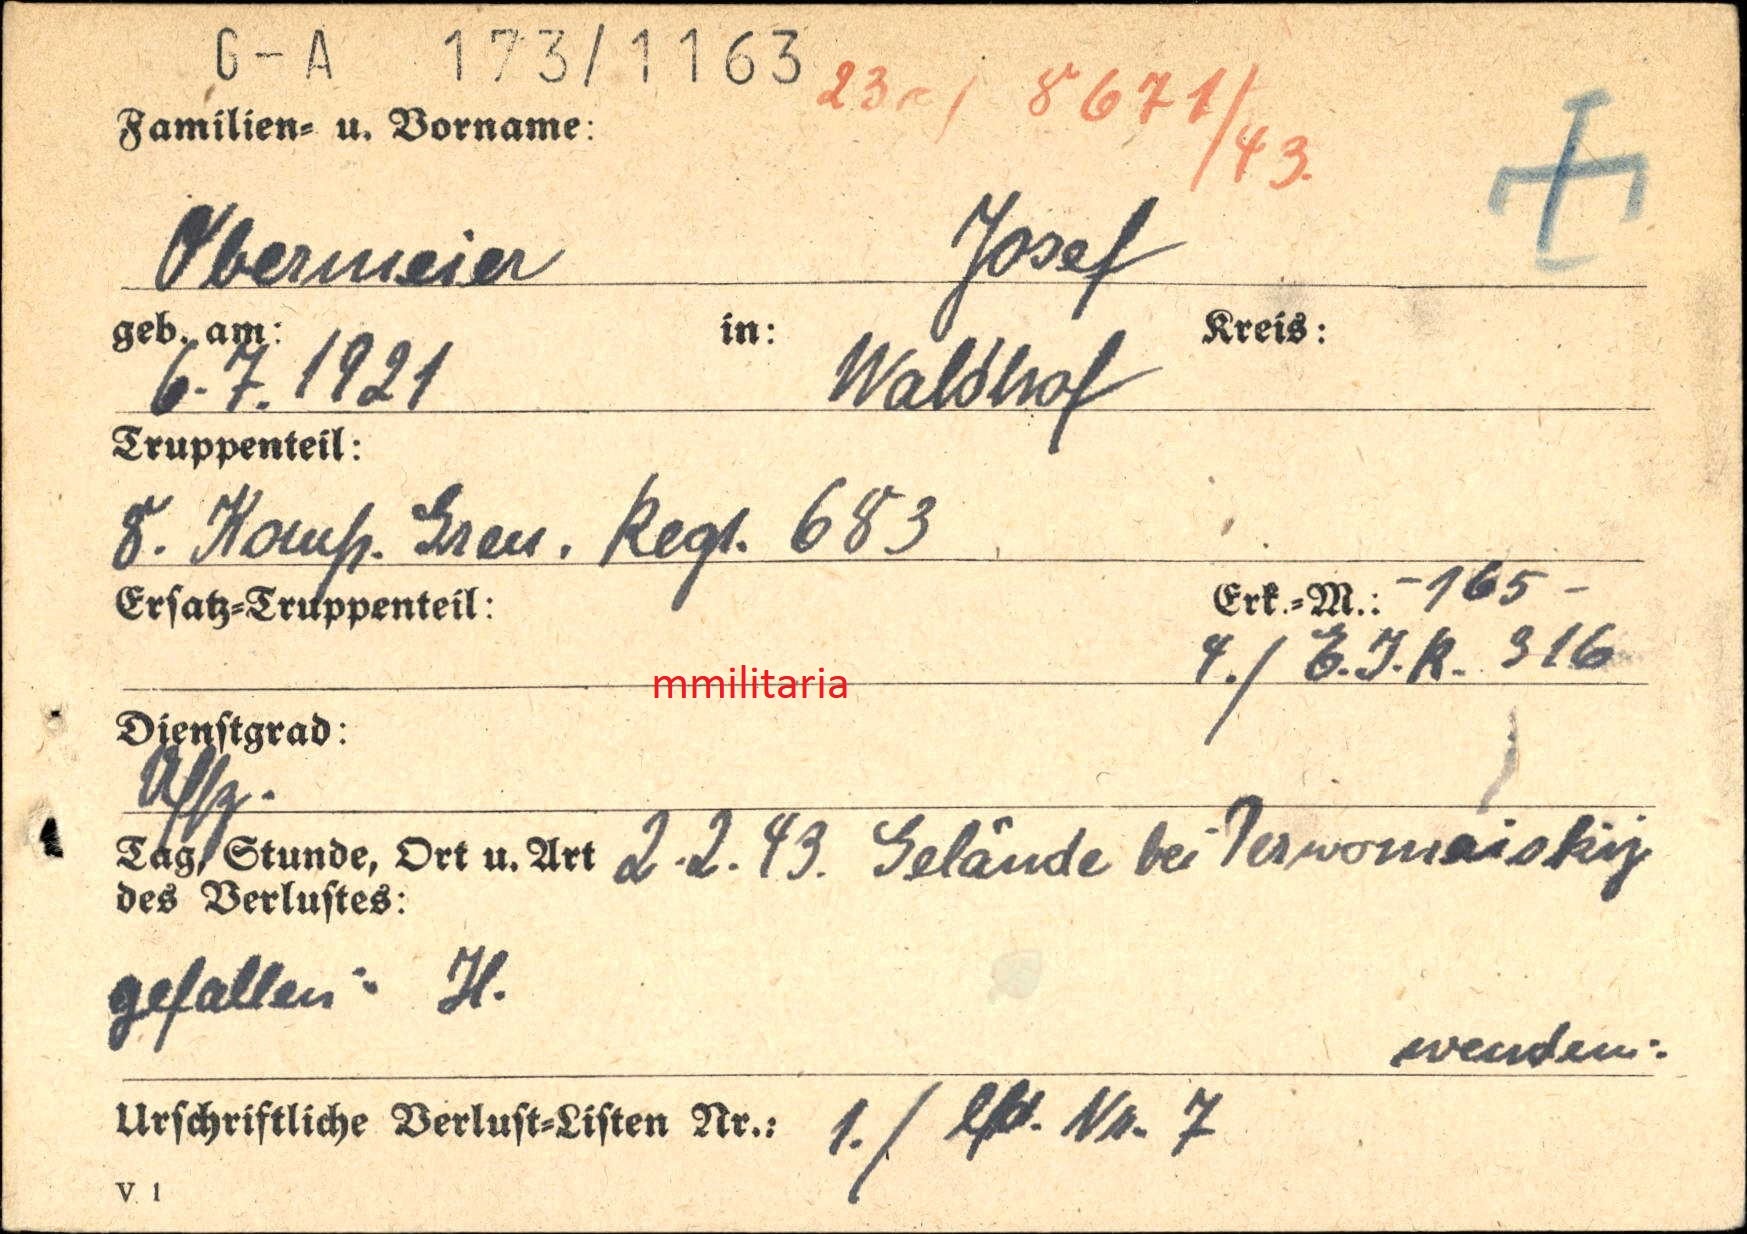 G-A 173/1163
23 / 8671/43.
Familien- u. Vorname:
Obermeier Josef
geb. am: in: Kreis:
6.7.1921 Waldhof
Truppenteil:
8. Komp. Gren. Regt. 683
Ersatz-Truppenteil: Erk.-M.: -165-
4./ E.I.R. 316
mmilitaria
Dienstgrad:
Uffz.
Tag, Stunde, Ort u. Art 2.2.43. Gelände bei Perwomaiskij
des Verlustes:
gefallen: H.
wenden:
Urschriftliche Verlust-Listen Nr.: 1./ lfd. Nr. 7
V 1